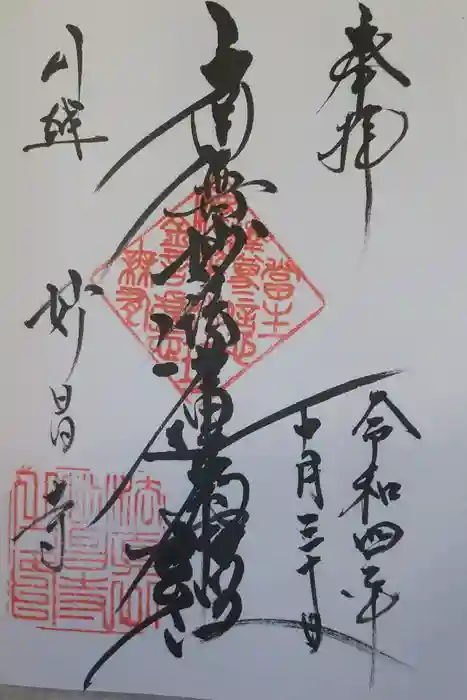 奉拝
令和四年
十月三十日
南無妙法蓮華経
川越
妙昌寺